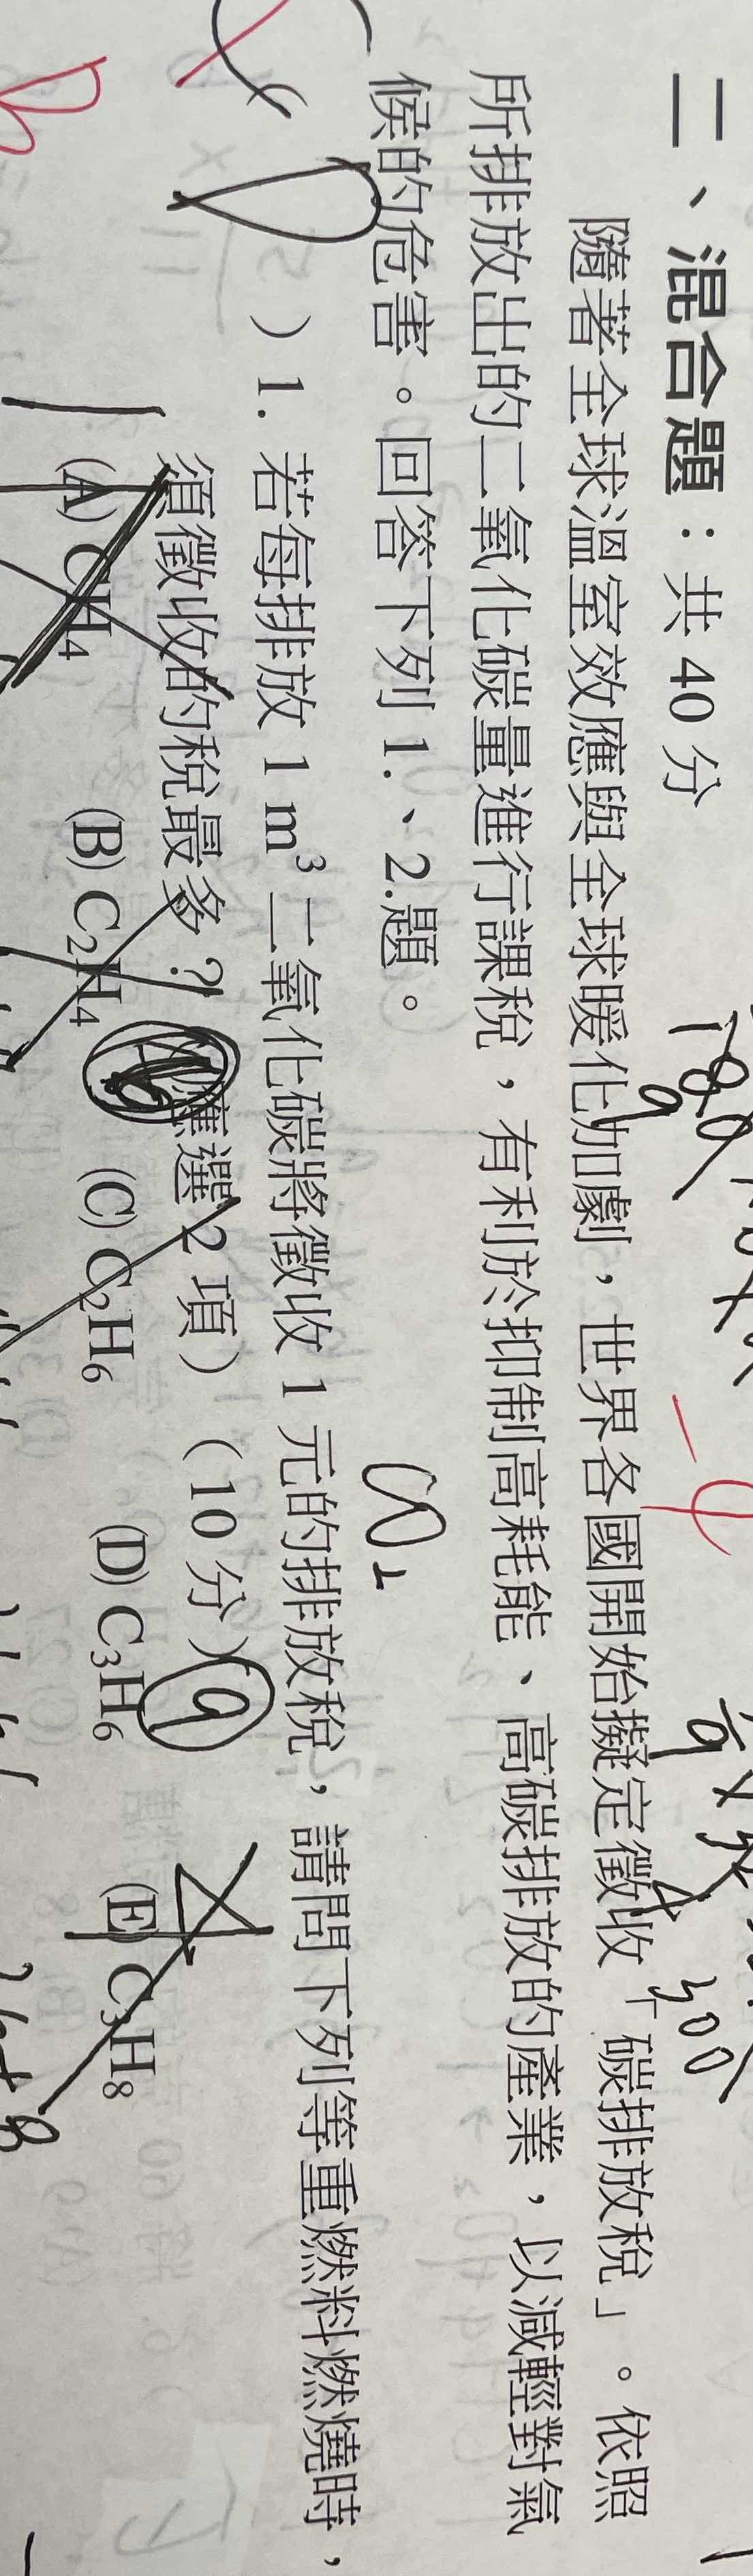 二、混合題：共 40 分
隨著全球溫室效應與全球暖化加劇，世界各國開始擬定徵收「碳排放稅」。依照
所排放出的二氧化碳量進行課稅，有利於抑制高耗能、高碳排放的產業，以減輕對氣
候的危害。回答下列 1.、2.題。
CO₂
）1. 若每排放 1 m³ 二氧化碳將徵收 1 元的排放稅，請問下列等重燃料燃燒時，
須徵收的稅最多？應選 2 項）（10 分）
(A) CH₄ (B) C₂H₄ (C) C₂H₆ (D) C₃H₆ (E) C₃H₈